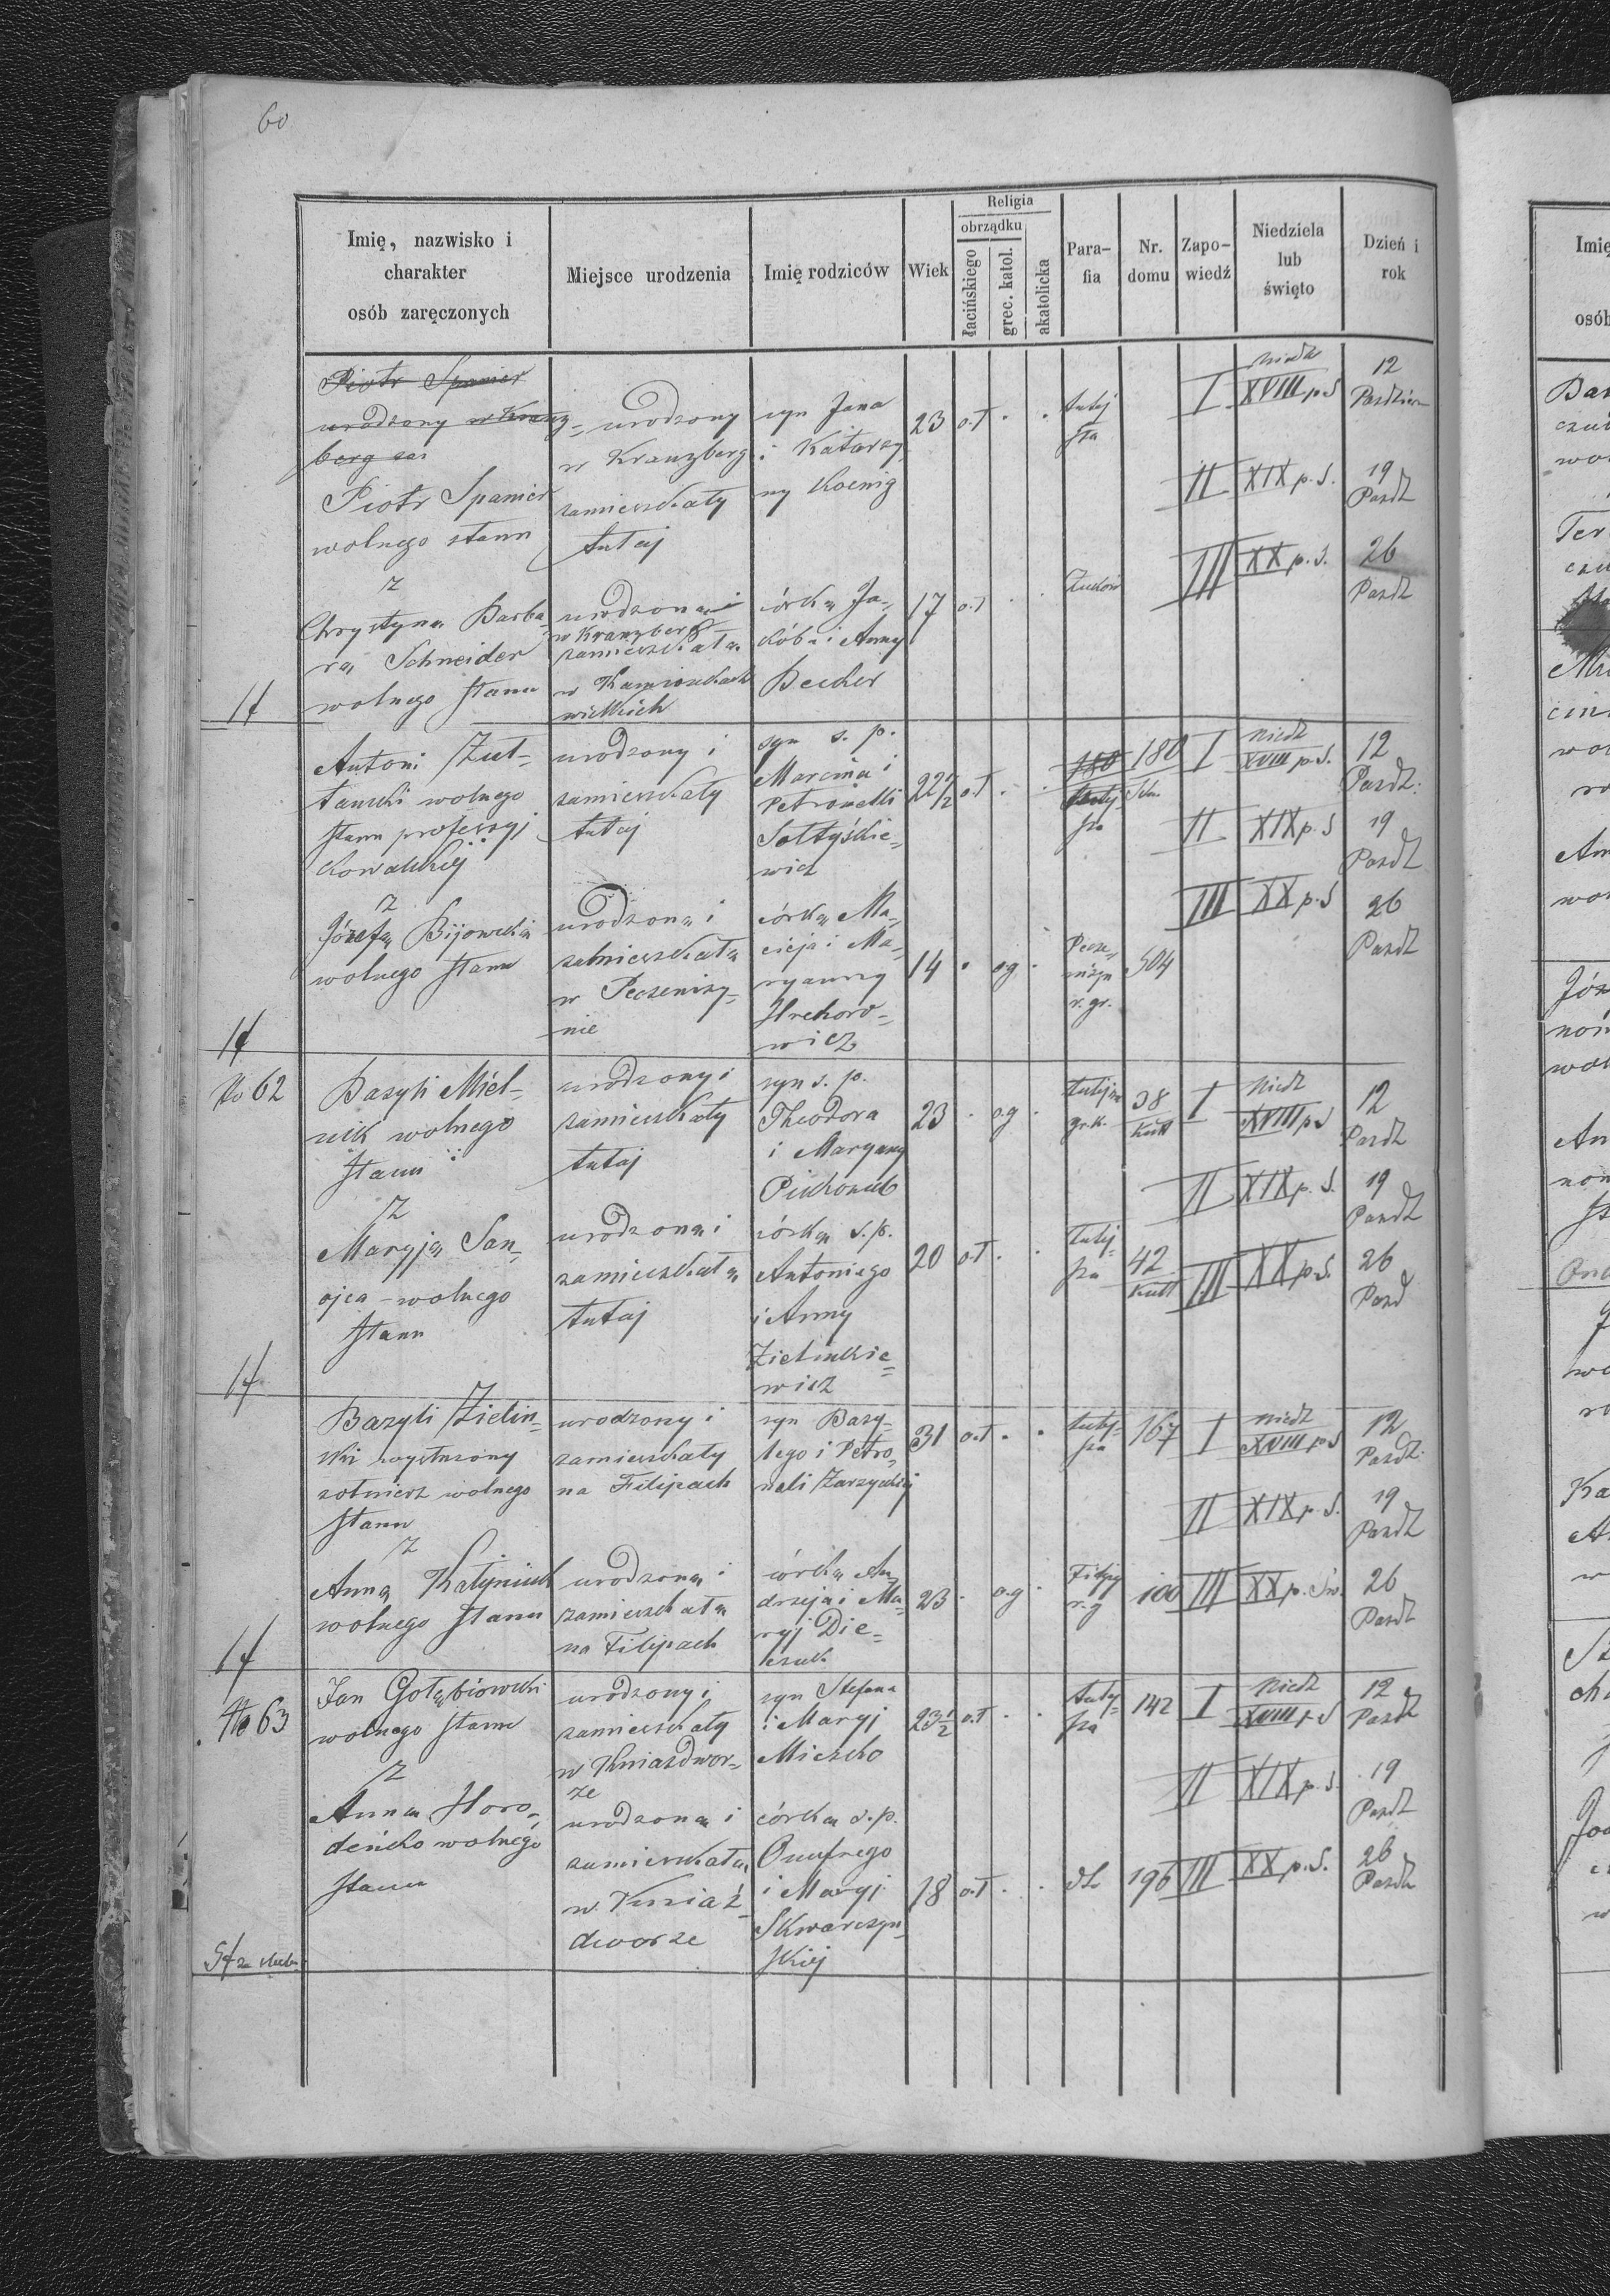 60
Imię, nazwisko i
charakter
osób zaręczonych
Miejsce urodzenia
Imię rodziców
Wiek
Religia
obrządku
łacińskiego
grec. katol.
akatolicka
Para-
fia
Nr.
domu
Zapo-
wiedź
Niedziela
lub
święto
Dzień i
rok
Piotr Spanier
urodzony w Kranz-
berg
Piotr Spanier
wolnego stanu
z
Chrystyna Barba-
ra Schneider
wolnego stanu
urodzony
w Kranzberg
zamieszkały
tutaj
urodzona i
w Kranzberg
zamieszkała
w Kamionkach
wielkich
syn Jana
i Katarzy
ny Koenig
córka Ja-
kóba i Anny
Becher
23 o.ł . .
17 o.ł . .
tutej
sza
I
niedz
XVIII p.S
12
II XIX p.S.
19
Pazdz
III XX p.S.
26
Pazdz
1f
Antoni Żuł-
tański wolnego
stanu professyi
kowalskiej
z
Józefa Bijowska
wolnego stanu
urodzony i
zamieszkały
tutaj
urodzona i
zamieszkała
w Peczeniży-
nie
syn s. p.
Marcina i
Petronelli
Sołtyskie-
wicz
córka Ma-
cieja i Ma-
ryanny
Hrehoro-
wicz
22 1/2 o.ł . .
14 . og .
180 180
sza
Pecze-
niżyn
r. gr.
504
I
niedz
XVIII p.S.
12
Pazdz.
II XIX p.S
19
Pazdz
III XX p.S
26
Pazdz
1f
No 62
Bazyli Miel-
nik wolnego
stanu
z
Maryja San-
ojca - wolnego
stanu
urodzony i
zamieszkały
tutaj
urodzona i
zamieszkała
tutaj
syn s. p.
Theodora
i Maryany
córka s.p.
Antoniego
i Anny
Zielinkie-
wicz
23 . og .
20 o.ł . .
gr.k.
38
tutej-
sza
42
I
niedz
XVIII p.S
12
Pazdz
II XIX p.S.
19
Pazdz
III XX p.S.
26
Pazd
1f
Bazyli Zielin-
ski wysłużony
żołnierz wolnego
stanu
z
Anna Hałyniuk
wolnego stanu
urodzony i
zamieszkały
na Filipach
urodzona i
zamieszkała
na Filipach
syn Bazy-
lego i Petro-
neli Zarzyckiej
córka An
drzeja i Ma-
ryj Die-
czuk
31 o.ł . .
23 . og .
tutej-
sza
167
Filipy
r.g
100
I
niedz
XVIII p.S
12
Pazdz.
II XIX p.S.
19
Pazdz
III XX p. Sw.
26
Pazdz
1f
No 63
Jan Gołębiowski
wolnego stanu
z
Anna Horo-
deńcko wolnego
stanu
urodzony i
zamieszkały
w Kniazdwor-
ze
urodzona i
zamieszkała
w Kniaź
dworze
syn Stefana
i Maryj
Mieszko
córka s.p.
Onufrego
i Maryj
Skwarczyn-
skiej
23 1/2 o.ł . .
18 o.ł . .
tutej-
sza
142
196
I
niedz
XVIII p.S
12
Pazdz
II XIX p.S.
19
Pazdz
III XX p.S.
26
Pazdz
5f za
Imię
osób